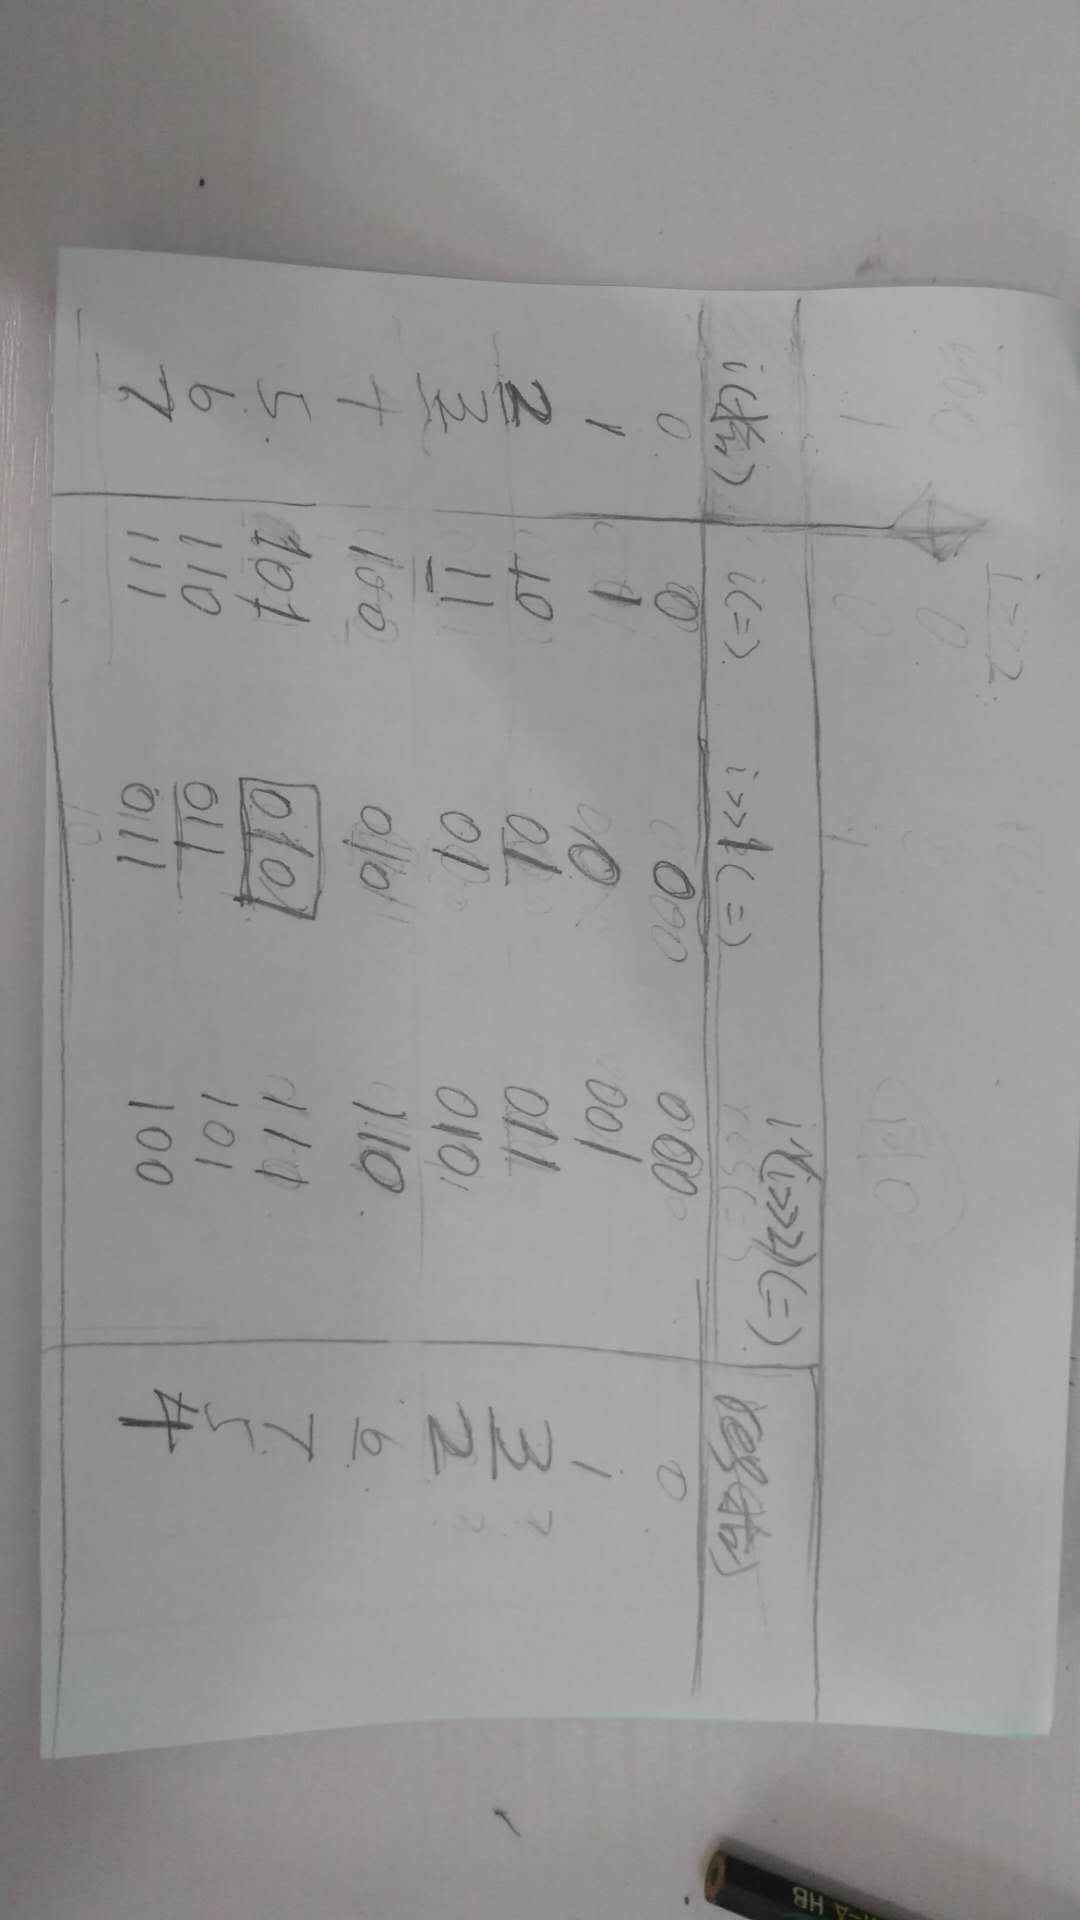 i>>2
i(十) i(二) i>>1(二) i^(i>>1)(二) res(十)
0 0 0 000 0
1 1 0 001 1
2 10 01 011 3
3 11 01 010 2
4 100 010 110 6
5 101 010 111 7
6 110 011 101 5
7 111 011 100 4
HB